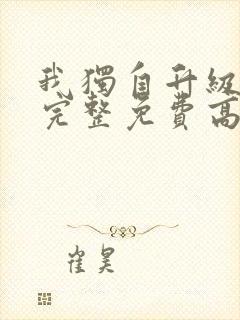 我獨自升級
完整免費高
崔昊